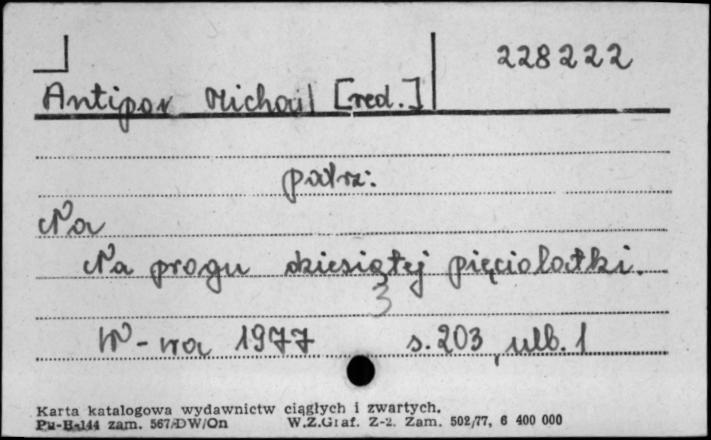 228222
Antipov Michaił [red.]
patrz:
Na
Na progu dziesiątej pięciolatki.
3
W-wa 1977 s. 203, ulb. 1
Karta katalogowa wydawnictw ciągłych i zwartych.
Pu-B-144 zam. 567/DW/On W.Z.Graf. Z-2. Zam. 502/77, 6 400 000